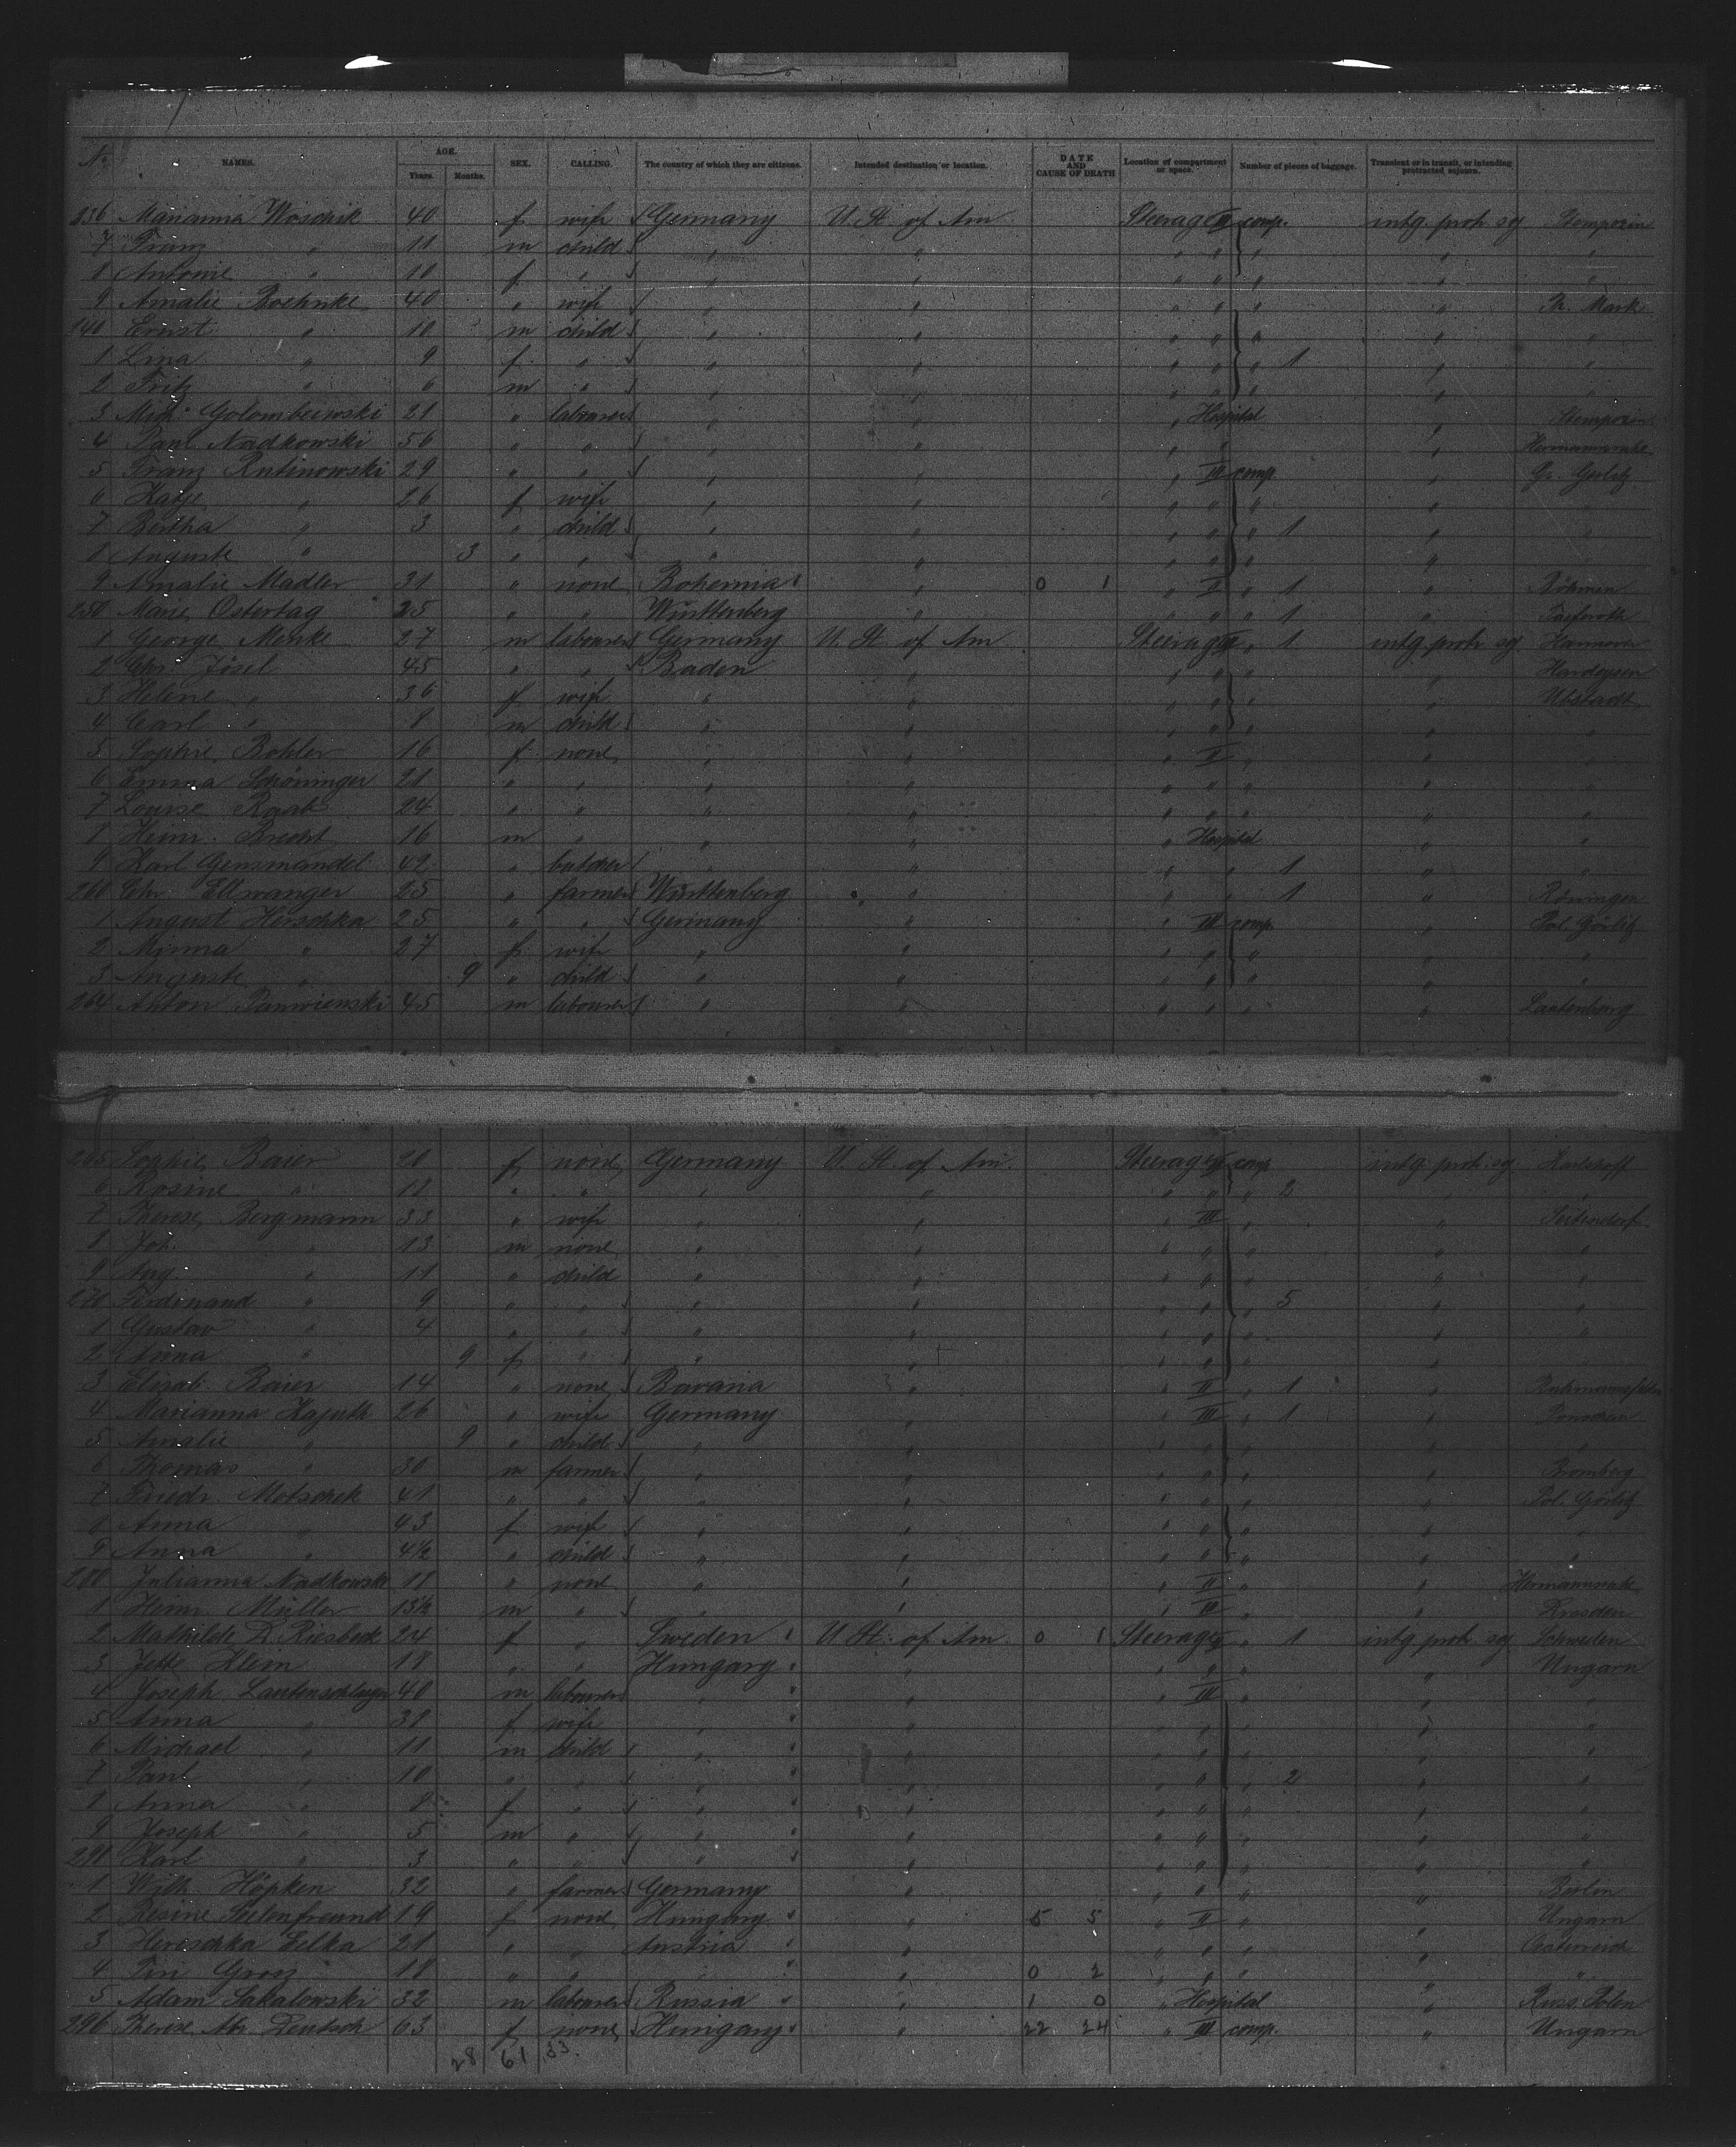 No. NAMES. AGE. Years. Months. SEX. CALLING. The country of which they are citizens. Intended destination or location. DATE AND CAUSE OF DEATH Location of compartment or space. Number of pieces of baggage. Transient or in transit, or intending protracted sojourn.
236 Marianna Woschik 40 f wife Germany U. St. of Am. Steerage II comp. intg. protr. sg Stemposin
7 Franz " 11 m child " " " " " " "
8 Antonie " 10 f " " " " " " " "
9 Amalie Boehnke 40 " wife " " " " " " Pr. Mark
240 Ernst " 10 m child " " " " " " "
1 Lina " 9 f " " " " " " 1 " "
2 Fritz " 6 m " " " " " " " "
3 Mich. Golombeewski 21 " labourer " " " Hospital " Stemposin
4 Paul Nadkowski 56 " " " " " " "
5 Franz Rutinowski 29 " " " " " III comp. " Gr. Görlitz
6 Katje " 26 f wife " " " " " " "
7 Bertha " 3 " child " " " " " 1 " "
8 Auguste " 3 " " " " " " " " "
9 Amalie Madler 31 " none Bohemia " 0 1 " II " 1 " Böhmen
250 Marie Ostertag 25 " " Württenberg " " " " 1 "
1 George Menke 27 m labourer Germany U. St. of Am Steerage " 1 intg. protr. sg Hannover
2 Chr. Jösel 45 " " Baden " " " " " Hardegsen
3 Helene " 36 f wife " " " " " " Ubstadt
4 Carl " 8 m child " " " " " " "
5 Sophie Bohler 16 f none " " " II " " "
6 Emma Schöninger 21 " " " " " " " " "
7 Louise Raab 24 " " " " " " " " "
8 Heinr. Brecht 16 m " " " " Hospital " "
9 Karl Gensmandel 49 " butcher " " " " 1 " "
260 Chr. Ellwanger 25 " farmer Württenberg " " " 1 "
1 August Herschka 25 " " Germany " " III comp. " Pol. Görlitz
2 Minna " 27 f wife " " " " " " "
3 Auguste " 9 " child " " " " " " "
264 Anton Panwienski 45 m labourer " " " " " " Lautenburg
265 Sophie Baier 20 f none Germany U. St. of Am. Steerage II comp intg. protr. sg Karlshoff
6 Rosine " 18 " " " " " " " 2 " "
7 Therese Bergmann 33 " wife " " " III " " Seitendorf
8 Joh. " 13 m none " " " " " " "
9 Aug. " 11 " child " " " " " " "
270 Ferdinand " 9 " " " " " " " 5 " "
1 Gustav " 4 " " " " " " " " "
2 Anna " 9 f " " " " " " " "
3 Elisab. Baier 14 " none Bavaria " " II " 1 "
4 Marianna Kajuth 26 " wife Germany " " III " 1 "
5 Amalie " 9 " child " " " " " " "
6 Thomas " 30 m farmer " " " " " " Bromberg
7 Friedr. Motschek 41 " " " " " " " " Pol. Görlitz
8 Anna " 43 f wife " " " " " " "
9 Anna " 4½ " child " " " " " " "
280 Julianna Nadkowski 18 " none " " " II " "
1 Heinr. Müller 13½ m " " " " III " " Dresden
2 Mathilde D. Riesbeck 24 f " Sweden U. St. of Am. 0 1 Steerage " 1 intg. protr. sg Schweden
3 Jette Klein 18 " " Hungary " " " " " Ungarn
4 Joseph Lautenschläger 40 m labourer " " " III " " "
5 Anna " 38 f wife " " " " " " "
6 Michael " 11 m child " " " " " " "
7 Paul " 10 " " " " " " " 2 " "
8 Anna " 8 f " " " " " " " "
9 Joseph " 5 m " " " " " " " "
290 Karl " 3 " " " " " " " " "
1 Wilh. Höpken 32 " farmer Germany " " " " " Berlin
2 Resine Seelenfreund 19 f none Hungary " 5 5 " II " " Ungarn
3 Hereschka Lelka 21 " " Austria " " " " " Oesterreich
4 Tini Grosz 18 " " " " 0 2 " " " " "
5 Adam Sakalowski 32 m labourer Russia " 1 0 " Hospital " Russ. Polen
296 Therese Deutsch 63 f none Hungary " 22 24 " III comp. " Ungarn
28 61 33.